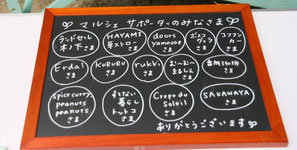 マルシェ サポーターのみなさま
ランドセル
木ノ下
さま
HAYAMI
草ストロー
さま
doors
yamazoe
さま
ボスコ
ヴィラ
さま
コフフン
カー
さま
Erdal
さま
KURURU
さま
rukk
さま
むーむー
まるしん
さま
さま
spice curry
peanuts
peanuts
さま
すてない
暮らし
さま
Crepe du
Soleil
さま
SAKAWAYA
さま
ありがとうございます